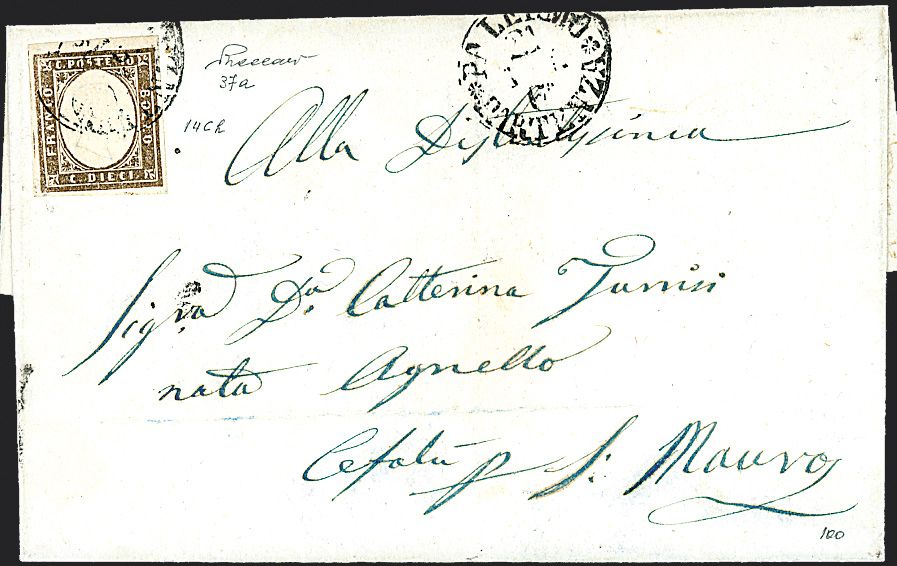 C. POSTE 20
FRANCO
BOLLO
C. DIECI
37a
14CR
PALERMO
Alla Distintissima
Sigra Da Catterina Turrisi
nata Agnello
Cefalù p S: Mauro
100